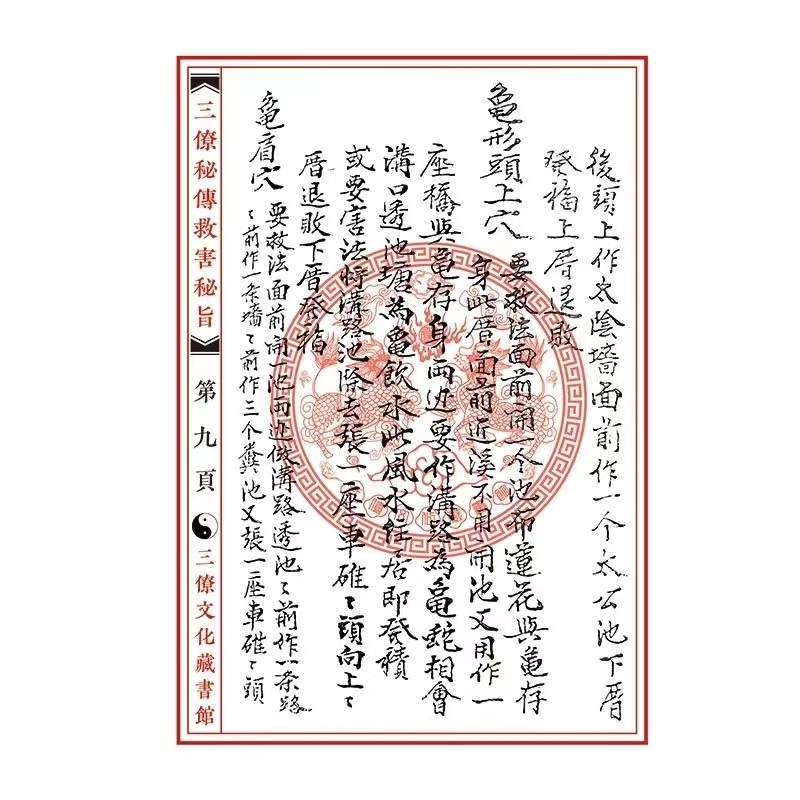 後頭上作太陰墻面前作一个太公池下厝
發福上厝退敗
龜形頭上穴
要救法面前開一个池布蓮花與龜存
身此厝面前近溪不用開池又用作一
座橋與龜存身兩边要作溝路為龜蛇相會
溝口透池塘為龜飲水此風水住居即發積
或要害法将溝路池除去張一座車碓〻頭向上〻
厝退敗下厝發福
龜眉穴
要救法面前開一池兩边做溝路透池〻前作一条路
〻前作一条墻〻前作三个糞池又張一座車碓〻頭
三僚秘傳救害秘旨
第九頁
三僚文化藏書館